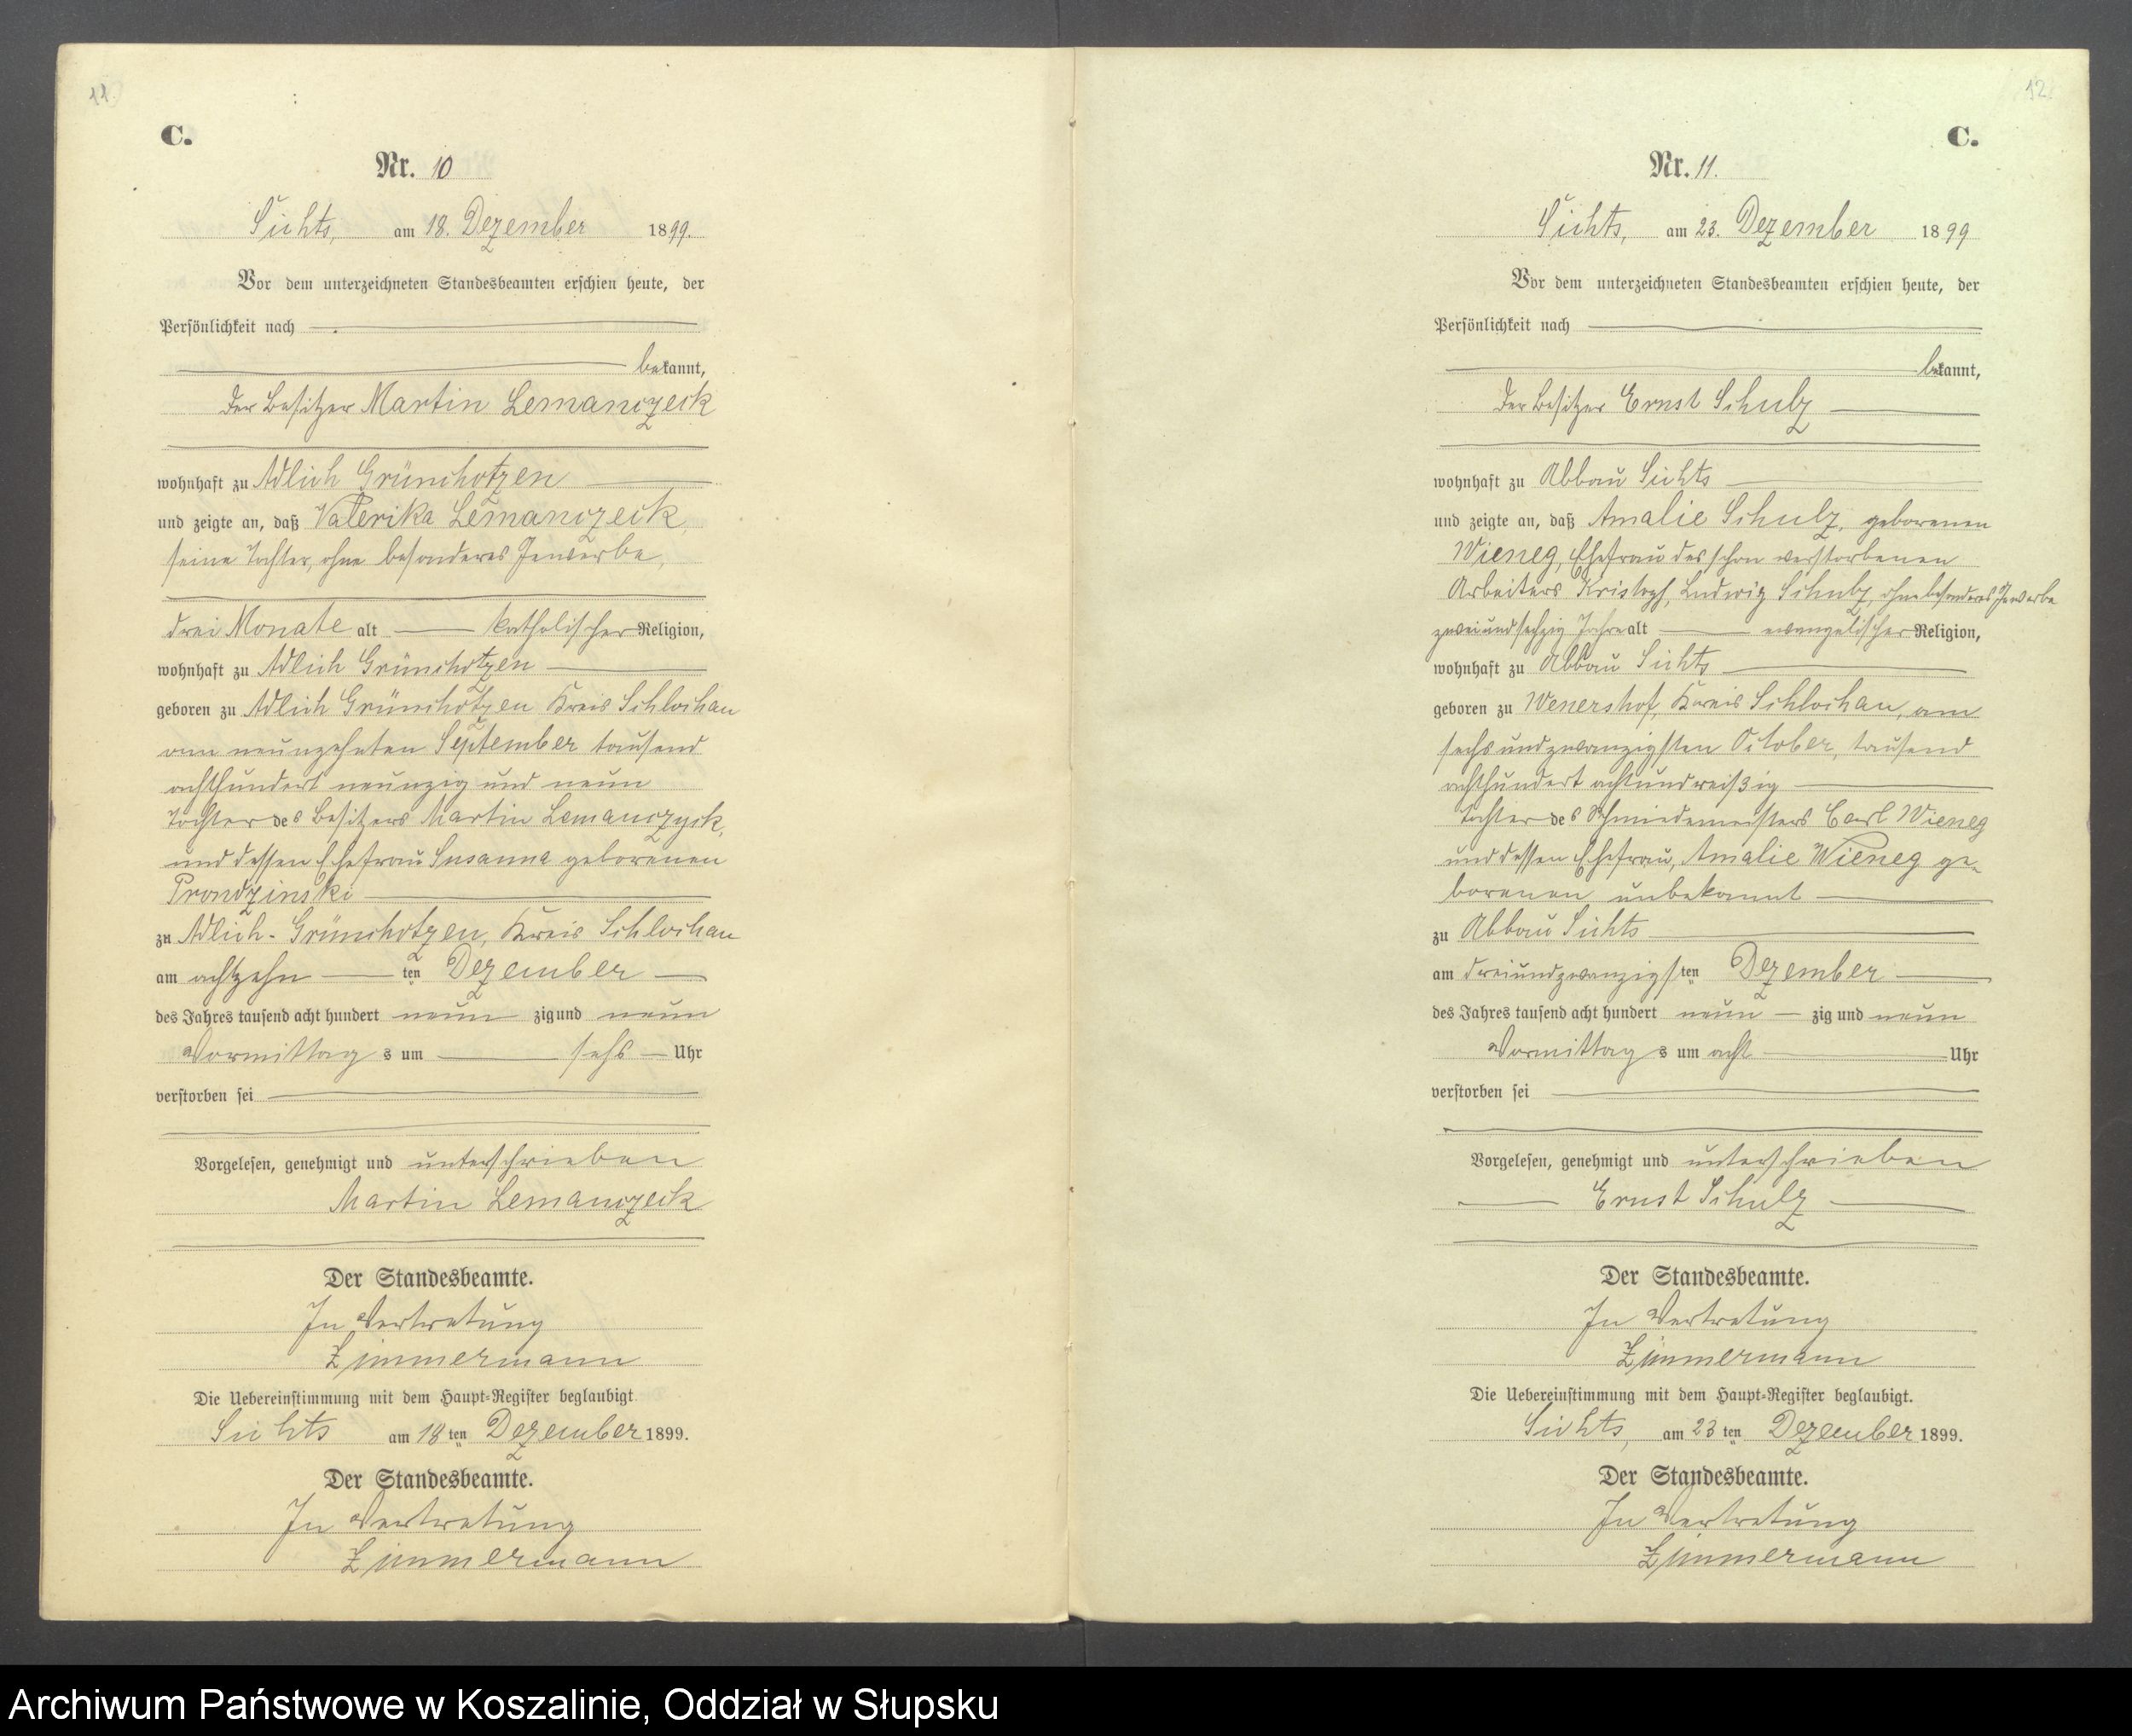 11.
C.
Nr. 10
Sichts, am 18. Dezember 1899.
Vor dem unterzeichneten Standesbeamten erschien heute, der
Persönlichkeit nach
bekannt,
der Besitzer Martin Lemanczeck
wohnhaft zu Adlich Grünchotzen
und zeigte an, daß Valerika Lemanczeck,
seine Tochter, ohne besonderes Gewerbe,
drei Monate alt katholischer Religion,
wohnhaft zu Adlich Grünchotzen
geboren zu Adlich Grünchotzen Kreis Schlochau
am neunzehnten September tausend
achthundert neunzig und neun
Tochter des Besitzers Martin Lemanczyck,
und dessen Ehefrau Susanna geborenen
Prondzinski
zu Adlich-Grünchotzen, Kreis Schlochau
am achtzehn ten Dezember
des Jahres tausend acht hundert neun zig und neun
Vormittag s um sechs Uhr
verstorben sei
Vorgelesen, genehmigt und unterschrieben
Martin Lemanczeck
Der Standesbeamte.
In Vertretung
Zimmermann
Die Uebereinstimmung mit dem Haupt-Register beglaubigt
Sichts am 18 ten Dezember 1899.
Der Standesbeamte.
In Vertretung
Zimmermann
12.
C.
Nr. 11.
Sichts, am 23. Dezember 1899
Vor dem unterzeichneten Standesbeamten erschien heute, der
Persönlichkeit nach
bekannt,
der Besitzer Ernst Schulz
wohnhaft zu Abbau Sichts
und zeigte an, daß Amalie Schulz, geborenen
Wieneg, Ehefrau des schon verstorbenen
Arbeiters Kristoph, Ludwig Schulz, ohne besonderes Gewerbe
zweiundsechzig Jahre alt evangelischer Religion,
wohnhaft zu Abbau Sichts
geboren zu Wenershof, Kreis Schlochau, am
sechsundzwanzigsten October, tausend
achthundert achtundreißig
Tochter des Schmiedemeisters Carl Wieneg
und dessen Ehefrau, Amalie Wieneg ge-
borenen unbekannt
zu Abbau Sichts
am dreiundzwanzigsten Dezember
des Jahres tausend acht hundert neun zig und neun
Vormittag s um acht Uhr
verstorben sei
Vorgelesen, genehmigt und unterschrieben
Ernst Schulz
Der Standesbeamte.
In Vertretung
Zimmermann
Die Uebereinstimmung mit dem Haupt-Register beglaubigt.
Sichts, am 23 ten Dezember 1899.
Der Standesbeamte.
In Vertretung
Zimmermann
Archiwum Państwowe w Koszalinie, Oddział w Słupsku